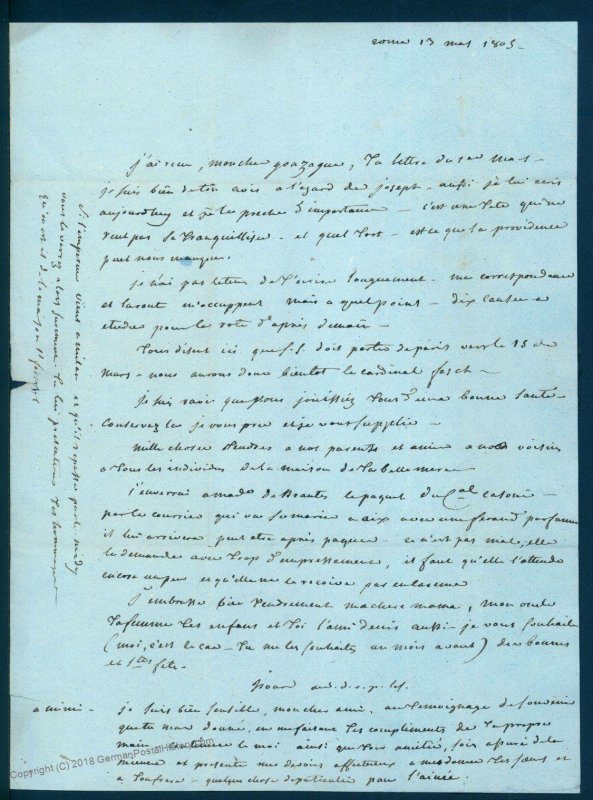 rome 13 mars 1805.
j'ai reçu, mon cher gonzague, ta lettre du 1er mars -
je suis bien de ton avis à l'égard de joseph - aussi je lui écris
aujourdhuy et je lui prêche d'importance - c'est une tete qui ne
veut pas se tranquilliser - et quel tort - est ce que la providence
peut nous manquer.
je n'ai pas le tems de t'ecrire longuement - ma correspondance
et la rote m'occuppent mais a quel point - dix causes a
etudier pour la rote d'après demain -
Tous disent ici que S.S. doit partir de paris vers le 15 de
mars - nous aurons donc bientot le cardinal fesch -
je suis ravi que vous jouissiez tous d'une bonne santé -
conservez la je vous prie et je vous supplie -
mille choses tendres a nos parents et amis a nos voisins
a tous les individus de la maison de ta belle mere -
j'enverrai a made de Brantes le paquet du Cal casoni -
par le courrier qui va se marier a aix avec une feraud parfumeur
il lui arrivera peut etre après paques - ce n'est pas mal, elle
le demande avec trop d'empressement, il faut qu'elle l'attende
encore un peu et qu'elle ne le recoive pas en careme
J'embrasse bien tendrement ma chere mama, mon oncle
ta femme tes enfans et toi l'ami denis aussi - je vous souhaite
(moi, c'est le cas - tu me les souhaites un mois avant) de bonnes
et stes fetes.
isoard aud. d. r. p. les.
a mimi - je suis bien sensible, mon cher ami, au temoignage de souvenir
que tu m'as donné, en me faisant tes complimens de ta propre
main - continue le moi ainsi que ton amitié, sois assuré de la
mienne et presente mes devoirs affectueux a mesdames tes soeurs et
a ton frere - quelque chose de particulier pour l'ainée.
Si l'empereur vient a milan et qu'il repasse par le midy
vous le verrez - alors
tu lui presenteras tes hommages
qu'on est de la maison
Copyright (C) 2018 GermanPostalHistory.com